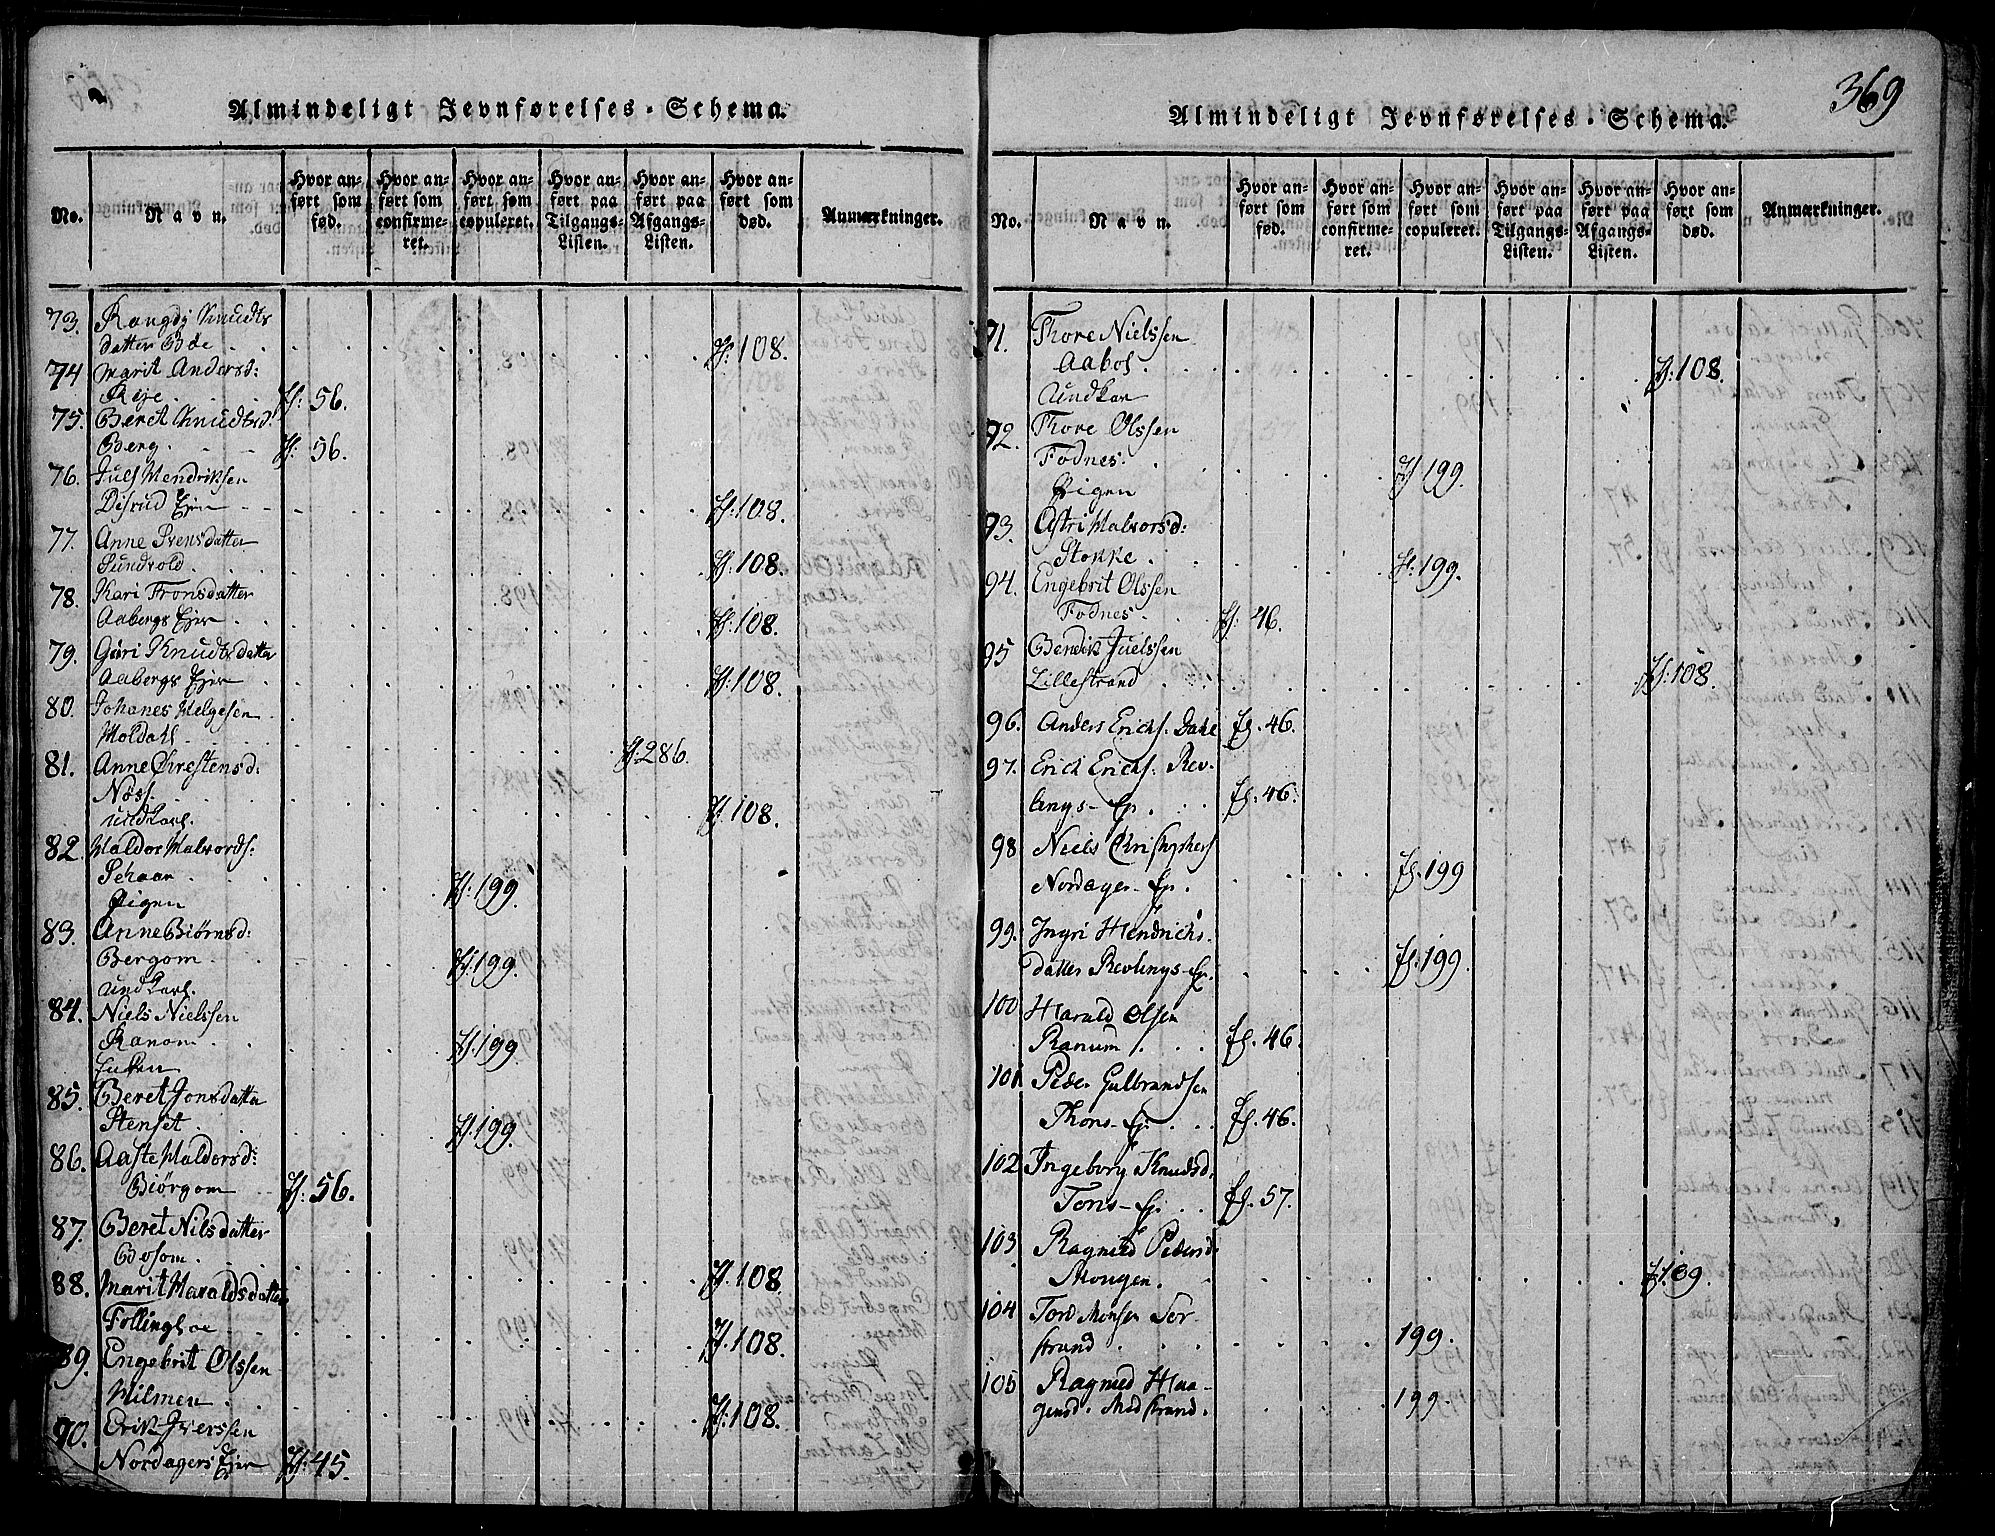 Almindeligt Jevnførelses-Schema.
No.
Navn.
Hvor anført som fød.
Hvor anført som confirmeret.
Hvor anført som copuleret.
Hvor anført paa Tilgangs-Listen.
Hvor anført paa Afgangs-Listen.
Hvor anført som død.
Anmærkninger.
73. Rangdj Knudts
datter Bøe . . . 108.
74 Marit Andersd:
Reje . . . 56.
75. Beret Knudtsd.
Berg. . . 56.
76. Juel Hendriksen
Disrud Ejer . . . 108.
77. Anne Svensdatter
Sundvold . . . 108.
78. Kari Tronsdatter
Aabergs Ejer . . . 108.
79. Guri Knudtsdatter
Aabergs Ejer . . . 108.
80. Johanes Helgesen
Moldahl . . . 286.
81. Anne Christensd:
Nøss. . . . 108.
undkarl.
82. Haldor Halvords:
Schaar . . . 199.
Pigen
83. Anne Biørnsd:
Bergom . . . 199.
undkarl.
84. Niels Nielssen
Ranom . . . 199
Enken
85. Beret Jonsdatter
Stenset . . . 199.
86. Aaste Haldorsd:
Biørgom . . 56.
87. Beret Nilsdatter
Bøsom . . . 108.
88. Marit Haraldsdatter
Follingloe . . . 108.
89. Engebrit Olssen
Hilmen . . . 108.
90. Erik Iverssen
Nordagers Ejer 45.
369
Almindeligt Jevnførelses-Schema.
No.
Navn.
Hvor anført som fød.
Hvor anført som confirmeret.
Hvor anført som copuleret.
Hvor anført paa Tilgangs-Listen.
Hvor anført paa Afgangs-Listen.
Hvor anført som død.
Anmærkninger.
91. Thore Nielssen
Aabol . . . 108.
Undkar
92. Thore Olssen
Fodnes. . . . 199.
Pigen
93. Astri Halvorsd:
Stokke . . . 199.
94. Engebrit Olssen
Fodnes . . 46.
95 Bendik Juelssen
Lillestrand . . . 108.
96. Anders Erichs. Dahl 46.
97. Erich Erichs: Rev-
lings-Ep. . . 46.
98 Niels Christophers
Nordager-Ep. . . . 199
99. Ingri Hendrichs
datter Revlings-Ep. . . . 199
100 Harald Olsen
Ranum . . . 46.
101 Peder Gulbrandsen
Thons-Ep. . . 46.
102 Ingeborg Knudsd.
Tons-Ep. . . 57.
103 Ragnild Pedersd.
Mougen. . . . 109.
104 Tord Monsen Sor-
strand . . . 199.
105 Ragnild Haa-
gensd. Medstrand. . . . 199.